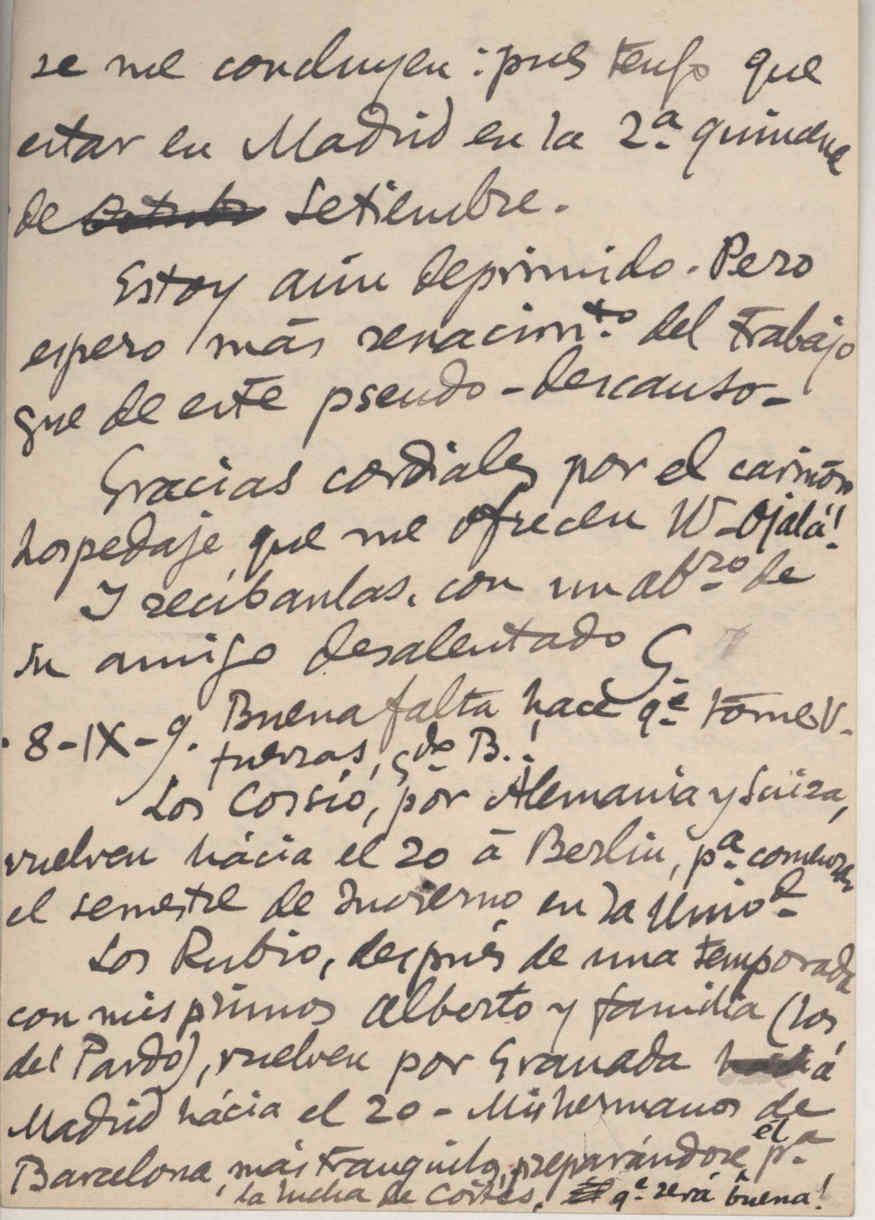 se me concluyen: pues tengo que
estar en Madrid en la 2ª quincena
de Octubre Setiembre.
Estoy aún deprimido. Pero
espero más renacionto. del trabajo
que de este pseudo-descanso-
Gracias cordiales por el cariñoso
hospedaje que me ofrecen W-Ojalá!
Y recíbanlas, con un abrzo de
su amigo desalentado G
8-IX-9. Buena falta hace qe tome V.
fuerzas, gdo B.!
Los Cossío, por Alemania y Suiza,
vuelven hácia el 20 á Berlin, pa comenzar
el semestre de Invierno en la Univd
Los Rubio, después de una temporada
con mis primos Alberto y familia (los
del Pardo), vuelven por Granada hacia á
Madrid hácia el 20 - Mis hermanos de
Barcelona, más tranquilos, preparándose él pa
la lucha de Córtes. qe será buena!